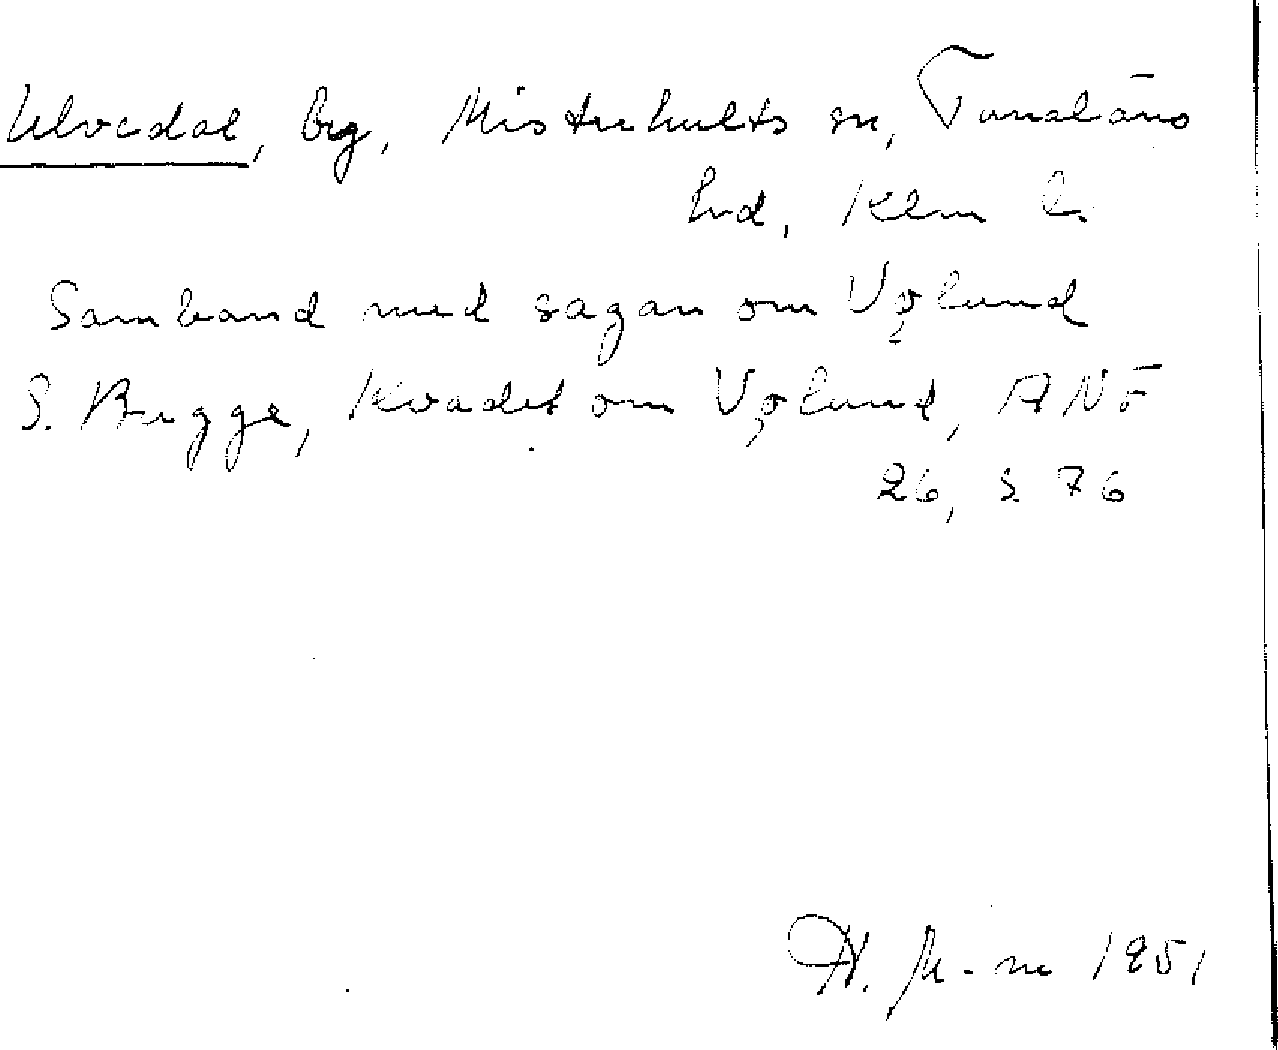 Ulvedal, bg, Misterhults sn, Tunaläns
hd, Klm l.
Samband med sagan om Vǫlund
S. Bugge, Kvadet om Vǫlund, ANF
26, s 76
H. M-m 1951